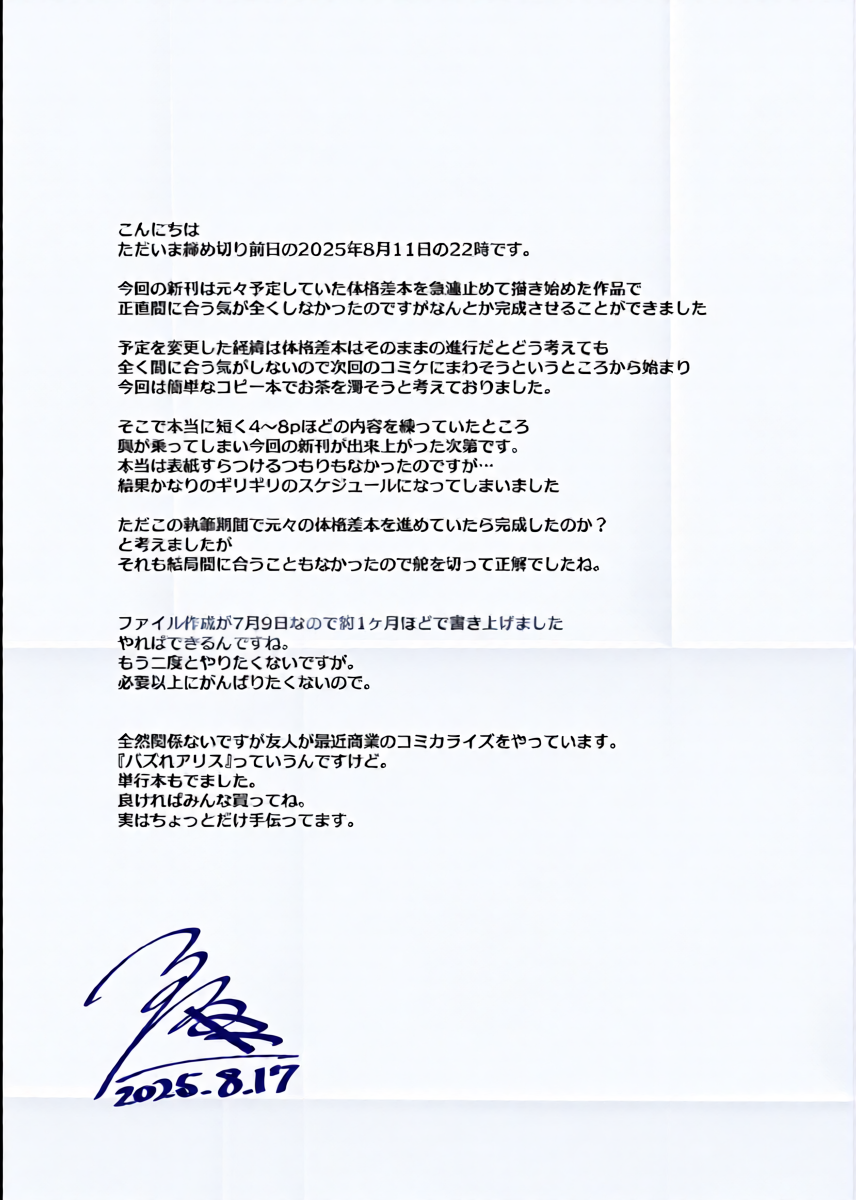 こんにちは
ただいま締め切り前日の2025年8月11日の22時です。
今回の新刊は元々予定していた体格差本を急遽止めて描き始めた作品で
正直間に合う気が全くしなかったのですがなんとか完成させることができました
予定を変更した経緯は体格差本はそのままの進行だとどう考えても
全く間に合う気がしないので次回のコミケにまわそうというところから始まり
今回は簡単なコピー本でお茶を濁そうと考えておりました。
そこで本当に短く4〜8pほどの内容を練っていたところ
興が乗ってしまい今回の新刊が出来上がった次第です。
本当は表紙すらつけるつもりもなかったのですが…
結果かなりのギリギリのスケジュールになってしまいました
ただこの執筆期間で元々の体格差本を進めていたら完成したのか？
と考えましたが
それも結局間に合うこともなかったので舵を切って正解でしたね。
ファイル作成が7月9日なので約1ヶ月ほどで書き上げました
やればできるんですね。
もう二度とやりたくないですが。
必要以上にがんばりたくないので。
全然関係ないですが友人が最近商業のコミカライズをやっています。
『バズれアリス』っていうんですけど。
単行本もでました。
良ければみんな買ってね。
実はちょっとだけ手伝ってます。
2025.8.17